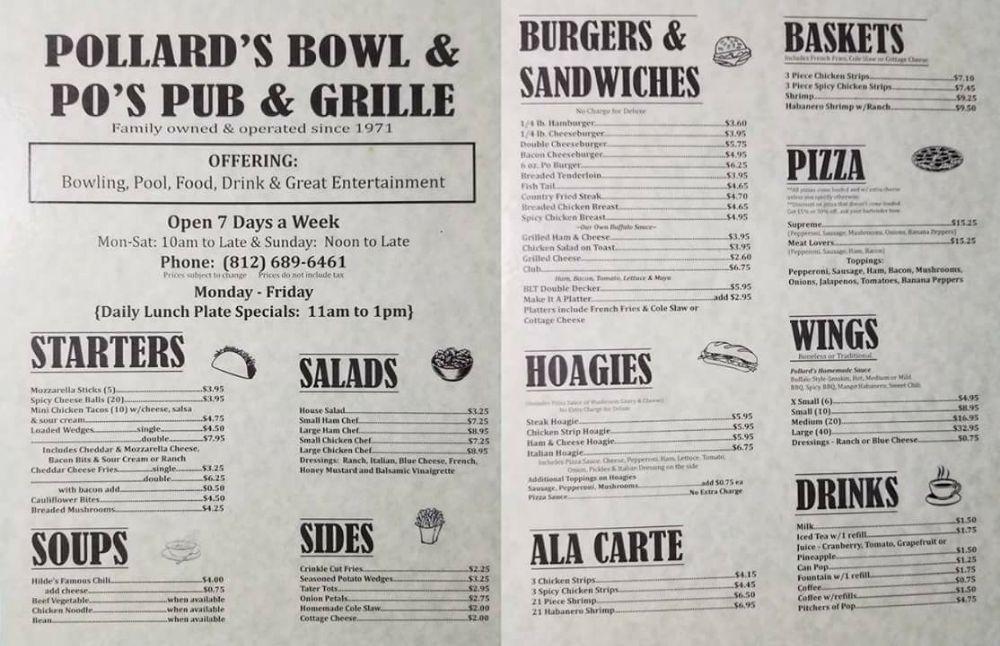 POLLARD'S BOWL &
PO'S PUB & GRILLE
Family owned & operated since 1971
OFFERING:
Bowling, Pool, Food, Drink & Great Entertainment
Open 7 Days a Week
Mon-Sat: 10am to Late & Sunday: Noon to Late
Phone: (812) 689-6461
Prices subject to change Prices do not include tax
Monday - Friday
{Daily Lunch Plate Specials: 11am to 1pm}
STARTERS
Mozzarella Sticks (5) $3.95
Spicy Cheese Balls (20) $3.95
Mini Chicken Tacos (10) w/cheese, salsa
& sour cream $4.75
Loaded Wedges single $4.50
double $7.95
Includes Cheddar & Mozzarella Cheese,
Bacon Bits & Sour Cream or Ranch
Cheddar Cheese Fries single $3.25
double $6.25
with bacon add $0.50
Cauliflower Bites $4.50
Breaded Mushrooms $4.25
SOUPS
Hilde's Famous Chili $4.00
add cheese $0.75
Beef Vegetable when available
Chicken Noodle when available
Bean when available
SALADS
House Salad $3.25
Small Ham Chef $7.25
Large Ham Chef $8.95
Small Chicken Chef $7.25
Large Chicken Chef $8.95
Dressings: Ranch, Italian, Blue Cheese, French,
Honey Mustard and Balsamic Vinaigrette
SIDES
Crinkle Cut Fries $2.25
Seasoned Potato Wedges $3.25
Tater Tots $2.95
Onion Petals $2.75
Homemade Cole Slaw $2.00
Cottage Cheese $2.00
BURGERS &
SANDWICHES
No Charge for Deluxe
1/4 lb. Hamburger $3.60
1/4 lb. Cheeseburger $3.95
Double Cheeseburger $5.75
Bacon Cheeseburger $4.95
6 oz. Po Burger $6.25
Breaded Tenderloin $3.95
Fish Tail $4.65
Country Fried Steak $4.70
Breaded Chicken Breast $4.65
Spicy Chicken Breast $4.95
~Our Own Buffalo Sauce~
Grilled Ham & Cheese $3.95
Chicken Salad on Toast $3.95
Grilled Cheese $2.60
Club $6.75
Ham, Bacon, Tomato, Lettuce & Mayo
BLT Double Decker $5.95
Make It A Platter add $2.95
Platters include French Fries & Cole Slaw or
Cottage Cheese
HOAGIES
(Includes Pizza Sauce or Mushroom Gravy & Cheese)
No Extra Charge for Deluxe
Steak Hoagie $5.95
Chicken Strip Hoagie $5.95
Ham & Cheese Hoagie $5.95
Italian Hoagie $6.75
Includes Pizza Sauce, Cheese, Pepperoni, Ham, Lettuce, Tomato,
Onion, Pickles & Italian Dressing on the side
Additional Toppings on Hoagies
Sausage, Pepperoni, Mushrooms add $0.75 ea
Pizza Sauce No Extra Charge
ALA CARTE
3 Chicken Strips $4.15
3 Spicy Chicken Strips $4.45
21 Piece Shrimp $6.50
21 Habanero Shrimp $6.95
BASKETS
Includes French Fries, Cole Slaw or Cottage Cheese
3 Piece Chicken Strips $7.10
3 Piece Spicy Chicken Strips $7.45
Shrimp $9.25
Habanero Shrimp w/Ranch $9.50
PIZZA
**All pizzas come loaded and w/ extra cheese
unless you specify otherwise.
**Discount on pizza that doesn't come loaded.
Supreme $15.25
(Pepperoni, Sausage, Mushrooms, Onions, Banana Peppers)
Meat Lovers $15.25
(Pepperoni, Sausage, Ham, Bacon)
Toppings:
Pepperoni, Sausage, Ham, Bacon, Mushrooms,
Onions, Jalapenos, Tomatoes, Banana Peppers
WINGS
Boneless or Traditional
Pollard's Homemade Sauce
Buffalo Style-Smokin, Hot, Medium or Mild
BBQ, Spicy BBQ, Mango Habanero, Sweet Chili
X Small (6) $4.95
Small (10) $8.95
Medium (20) $16.95
Large (40) $32.95
Dressings - Ranch or Blue Cheese $0.75
DRINKS
Milk $1.50
Iced Tea w/1 refill $1.75
Juice - Cranberry, Tomato, Grapefruit or
Pineapple $1.50
Can Pop $1.25
Fountain w/1 refill $1.75
Coffee $0.75
Coffee w/refills $1.50
Pitchers of Pop $4.75